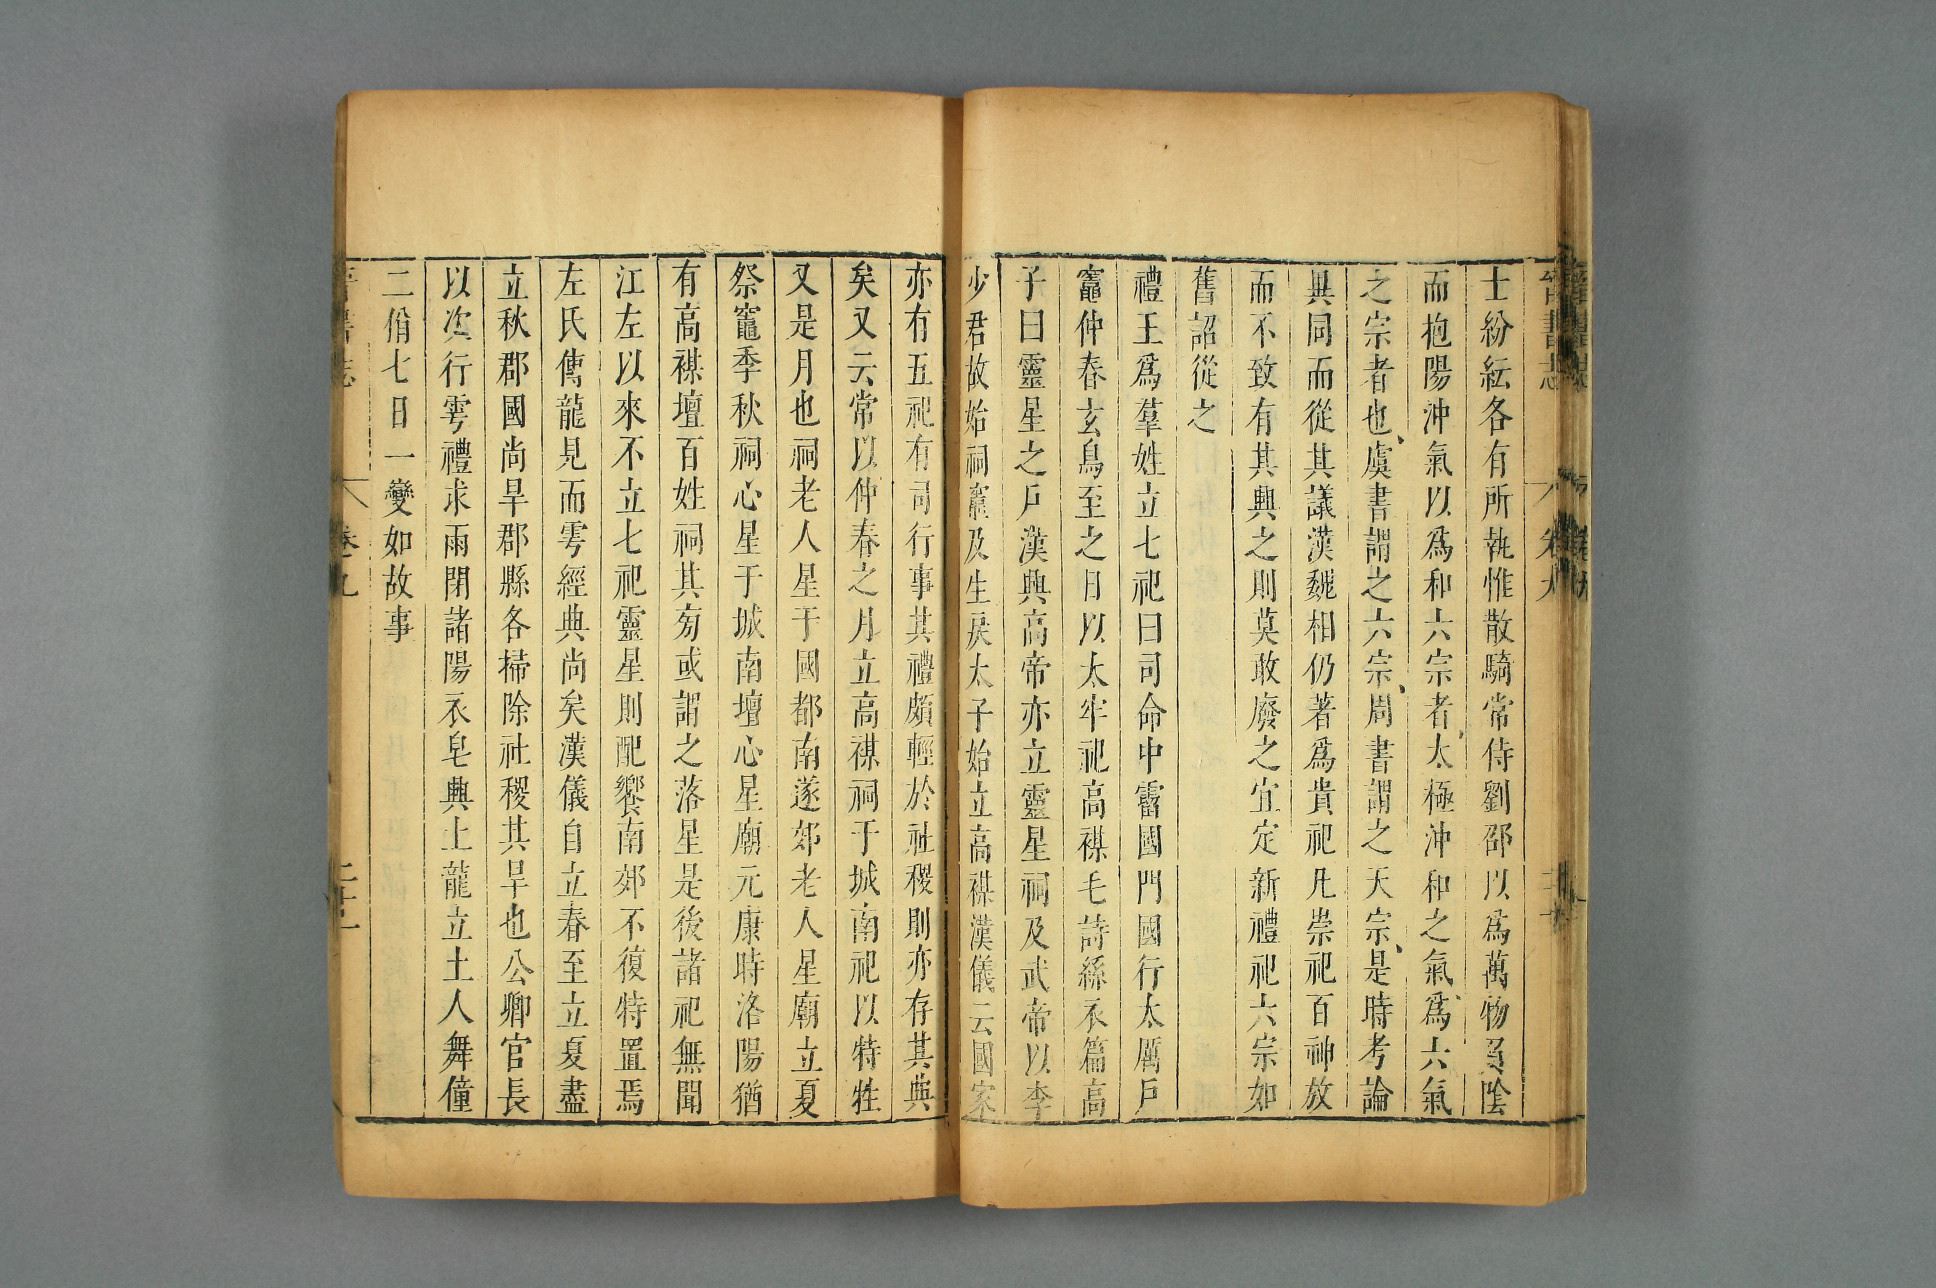 晉書志 卷九
士紛紜各有所執惟散騎常侍劉邵以爲萬物負陰
而抱陽沖氣以爲和六宗者太極沖和之氣爲六氣
之宗者也虞書謂之六宗周書謂之天宗是時考論
異同而從其議漢魏相仍著爲貴祀凡崇祀百神放
而不致有其興之則莫敢廢之宜定新禮祀六宗如
舊詔從之
禮王爲羣姓立七祀曰司命中霤國門國行太厲戶
竈仲春玄鳥至之日以太牢祀高禖毛詩絲衣篇高
子曰靈星之尸漢興高帝亦立靈星祠及武帝以李
少君故始祠竈及生戾太子始立高禖漢儀云國家
亦有五祀有司行事其禮頗輕於社稷則亦存其典
矣又云常以仲春之月立高禖祠于城南祀以特牲
又是月也祠老人星于國都南遂郊老人星廟立夏
祭竈季秋祠心星于城南壇心星廟元康時洛陽猶
有高禖壇百姓祠其旁或謂之落星是後諸祀無聞
江左以來不立七祀靈星則配饗南郊不復特置焉
左氏傳龍見而雩經典尚矣漢儀自立春至立夏盡
立秋郡國尚旱郡縣各掃除社稷其旱也公卿官長
以次行雩禮求雨閉諸陽衣皂興土龍立土人舞僮
二佾七日一變如故事
晉書志 卷九 二十一